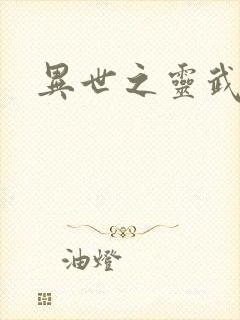 異世之靈武
油燈